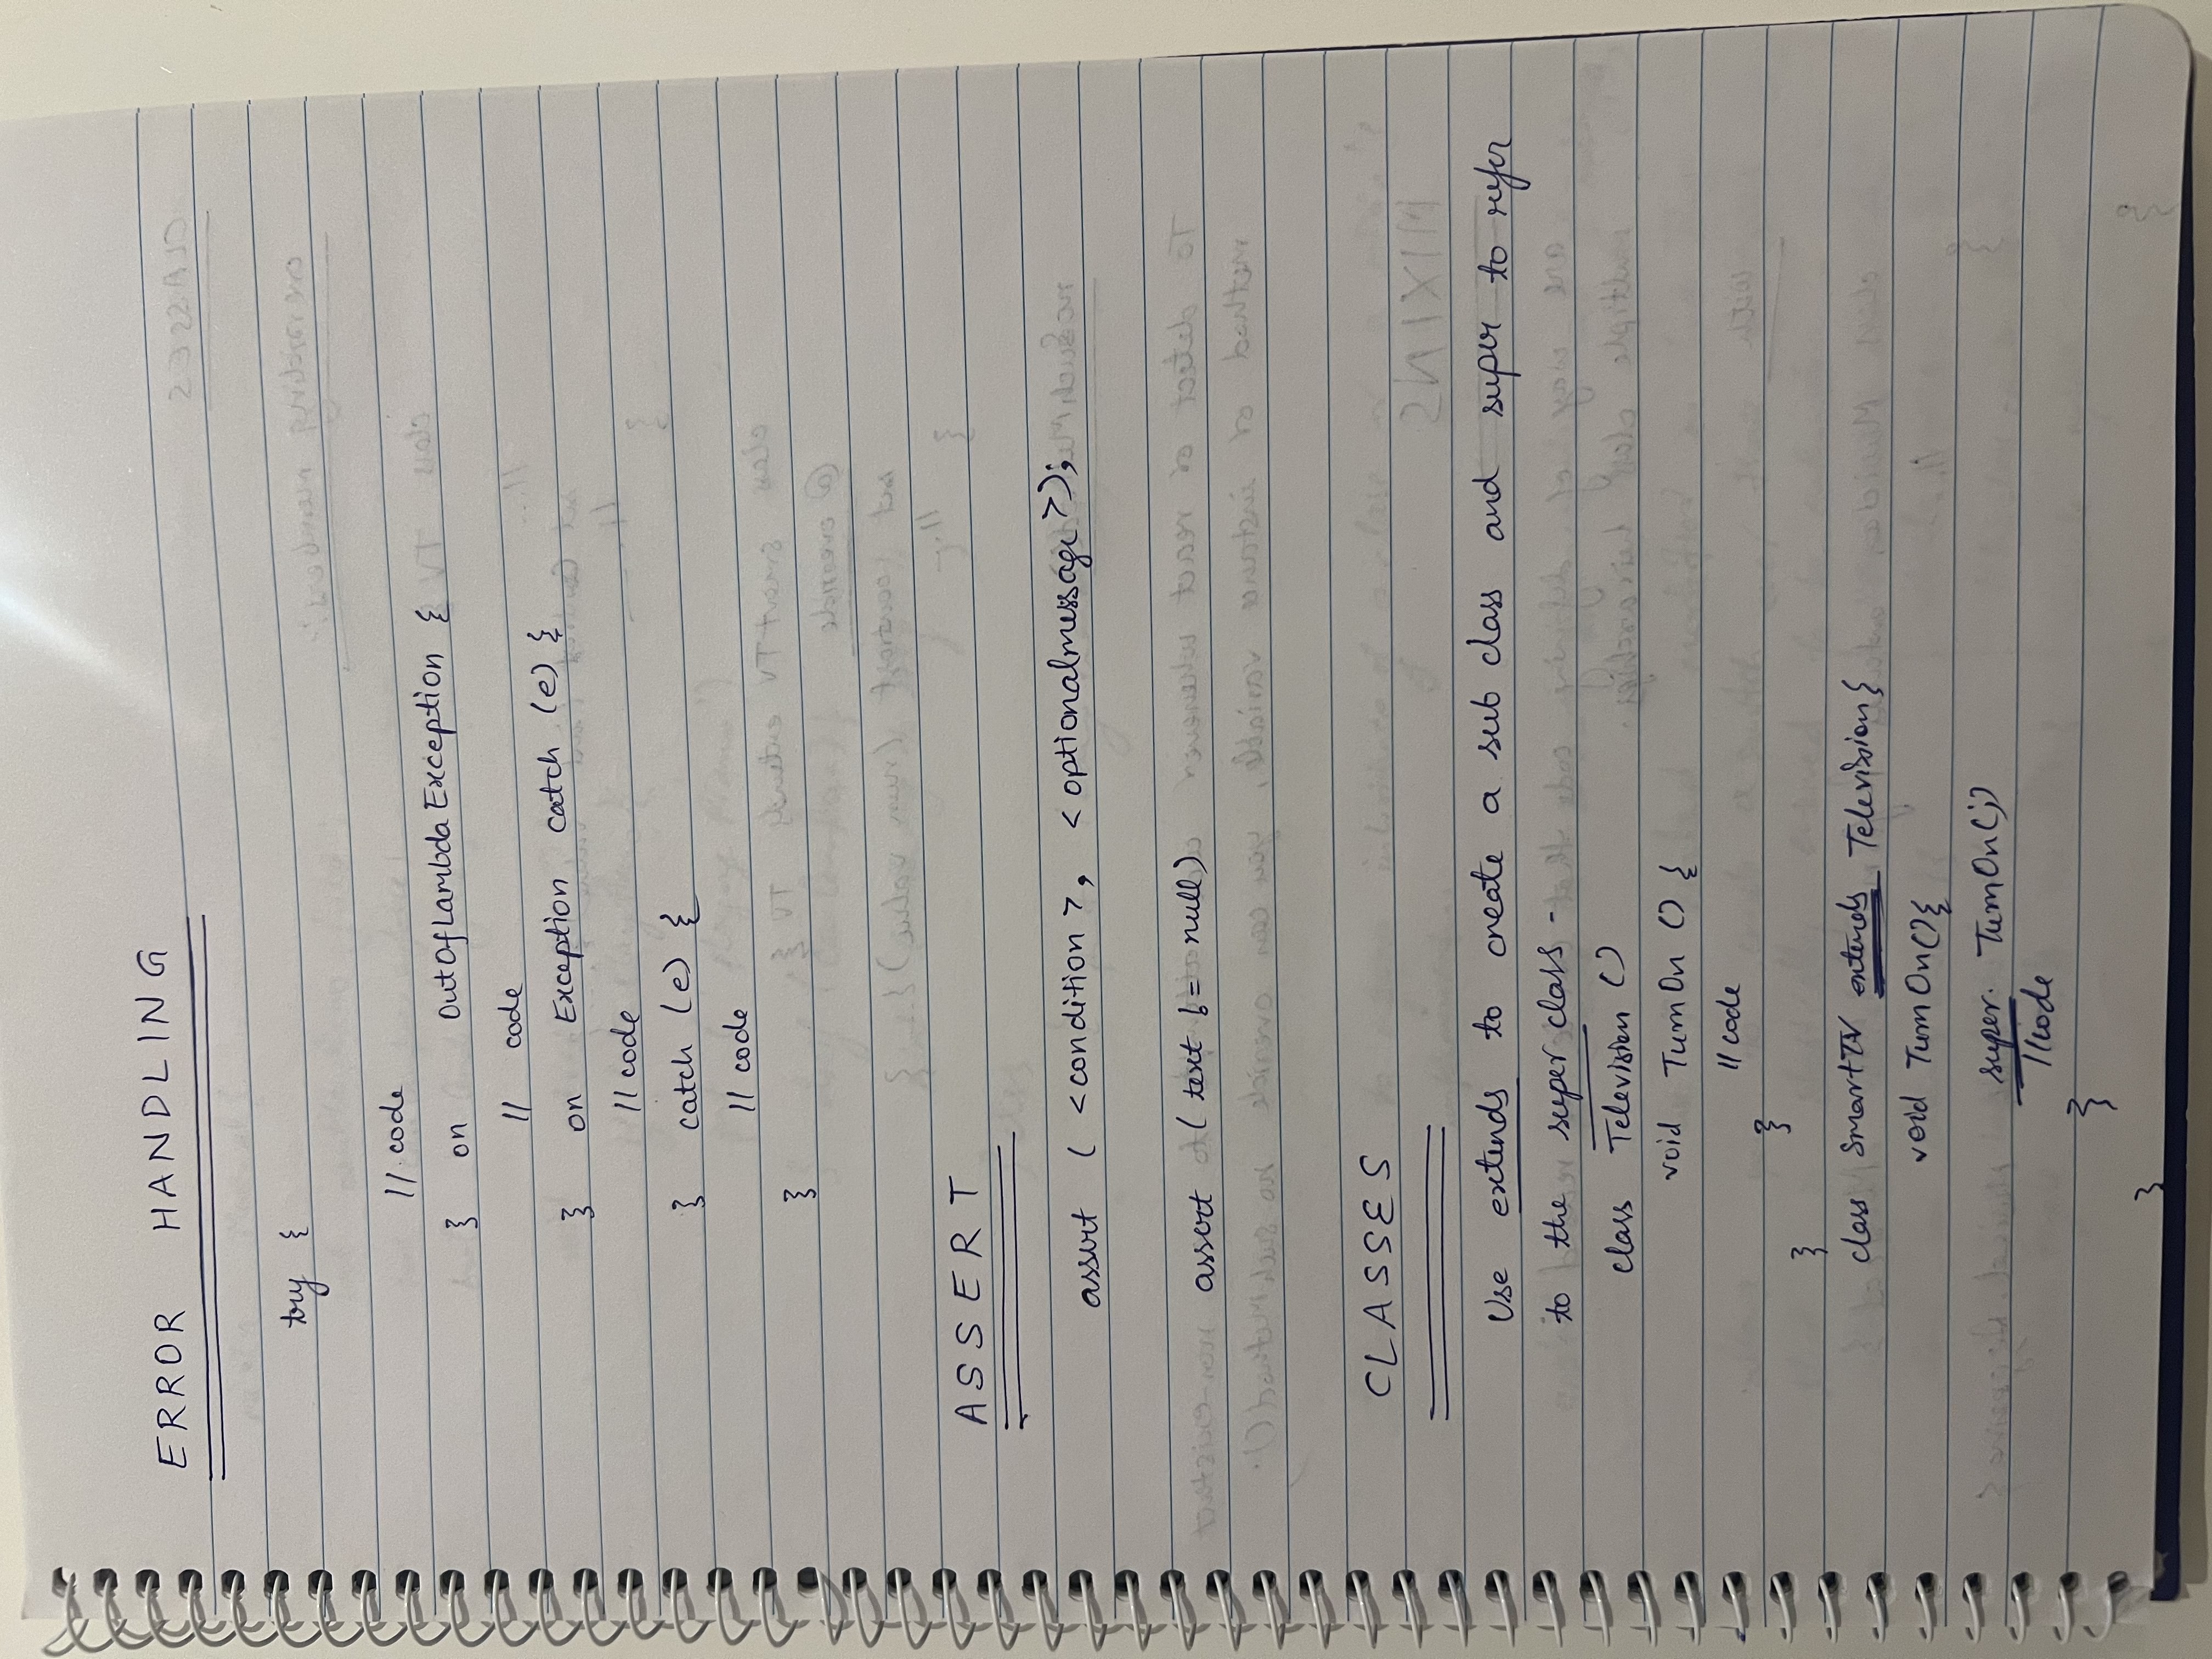 ERROR HANDLING
try {
// code
} on OutOfLambdaException {
// code
} on Exception catch (e) {
// code
} catch (e) {
// code
}
ASSERT
assert ( <condition>, <optionalmessage>);
assert ( text != null)
CLASSES
Use extends to create a sub class and super to refer
to the super class -
class Television ()
void TurnOn () {
// code
}
}
class SmartTV extends Television{
void TurnOn(){
super. TurnOn(;)
//code
}
}